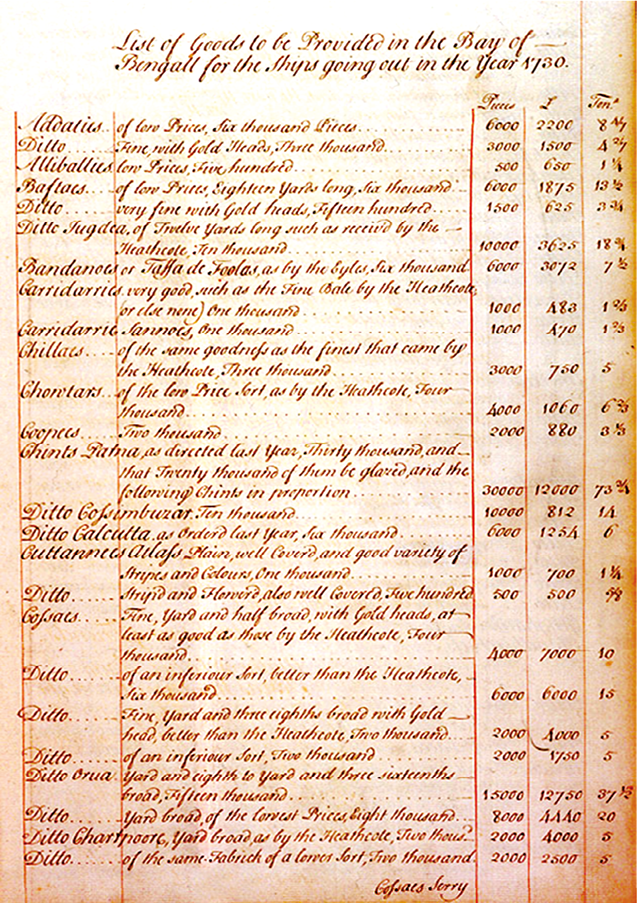 List of Goods to be Provided in the Bay of
Bengall for the Ships going out in the Year 1730.
Pieces £ Tons
Addaties of low Prices, Six thousand Pieces 6000 2200 8 4/7
Ditto Fine, with Gold Heads, Three thousand 3000 1500 4 2/7
Alliballies low Prices, Five hundred 500 650 1 1/4
Baftaes of low Prices, Eighteen Yards long, Six thousand 6000 1875 13 1/2
Ditto very fine with Gold heads, Fifteen hundred 1500 625 3 3/4
Ditto Jugdea, of Twelve Yards long such as receiv'd by the
Heathcote, Ten thousand 10000 3625 18 3/4
Bandanoes or Taffa de Foolas, as by the Eyles, Six thousand 6000 3072 7 1/2
Carridarries, very good, such as the Fine Bale by the Heathcote,
or else none) One thousand 1000 483 1 2/3
Carridarrie Sannoes, One thousand 1000 470 1 2/3
Chillaes of the same goodness as the finest that came by
the Heathcote, Three thousand 3000 750 5
Chowtars of the low Price Sort, as by the Heathcote, Four
thousand 4000 1060 6 2/3
Coopees Two thousand 2000 880 3 1/3
Chints Patna, as directed last Year, Thirty thousand, and
that Twenty thousand of them be glazed, and the
following Chints in proportion 30000 12000 73 3/4
Ditto Cossimbuzar, Ten thousand 10000 812 14
Ditto Calcutta, as Order'd last Year, Six thousand 6000 1254 6
Cuttannees Atlass Plain, well Cover'd, and good variety of
Stripes and Colours, One thousand 1000 700 1 1/4
Ditto Strip'd and Flower'd, also well Covered, Five hundred 500 500 5/8
Cossaes Fine, Yard and half broad, with Gold heads, at
least as good as those by the Heathcote, Four
thousand 4000 7000 10
Ditto of an inferiour Sort, better than the Heathcote,
Six thousand 6000 6000 15
Ditto Fine, Yard and three eighths broad with Gold
head, better than the Heathcote, Two thousand 2000 4000 5
Ditto of an inferiour Sort, Two thousand 2000 1750 5
Ditto Orua Yard and eighth to Yard and three sixteenths
broad, Fifteen thousand 15000 12750 37 1/2
Ditto Yard broad, of the lowest Prices, Eight thousand 8000 4440 20
Ditto Chartpoore, Yard broad, as by the Heathcote, Two thous.d 2000 4000 5
Ditto of the same Fabrick of a lower Sort, Two thousand 2000 2500 5
Cossaes Serry